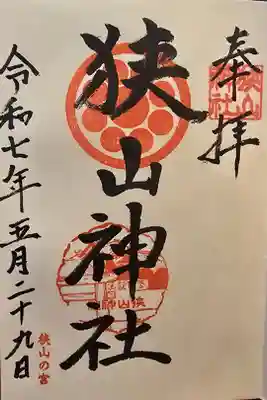 奉拝
狭山神社
令和七年五月二十九日
狭山の宮
狭山